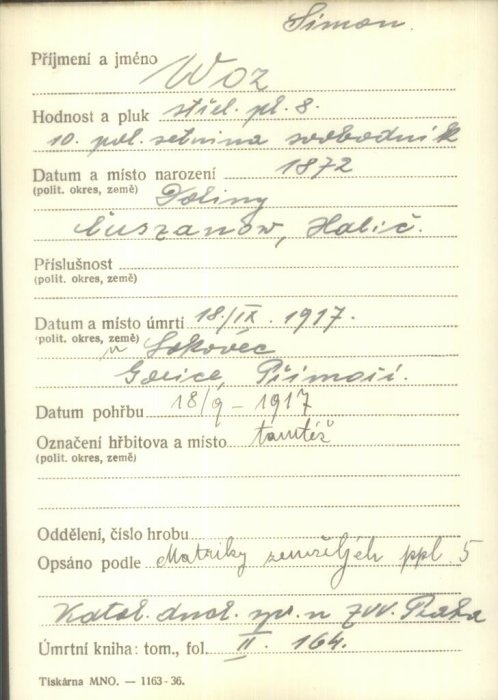 Simon.
Příjmení a jméno Woz
Hodnost a pluk střel. pl. 8.
10. pol. setnina svobodník
Datum a místo narození 1872
(polit. okres, země) Doliny
Cuszanow, Halič.
Příslušnost
(polit. okres, země)
Datum a místo úmrtí 18./IX. 1917.
(polit. okres, země) u Lokovec
Gorice, Přímoří.
Datum pohřbu 18/9 – 1917
Označení hřbitova a místo tamtéž
(polit. okres, země)
Oddělení, číslo hrobu
Opsáno podle Matriky zemřelých ppl. 5
Katol. duch. spr. u ZVV. Praha
Úmrtní kniha: tom., fol. II. 164.
Tiskárna MNO. — 1163-36.